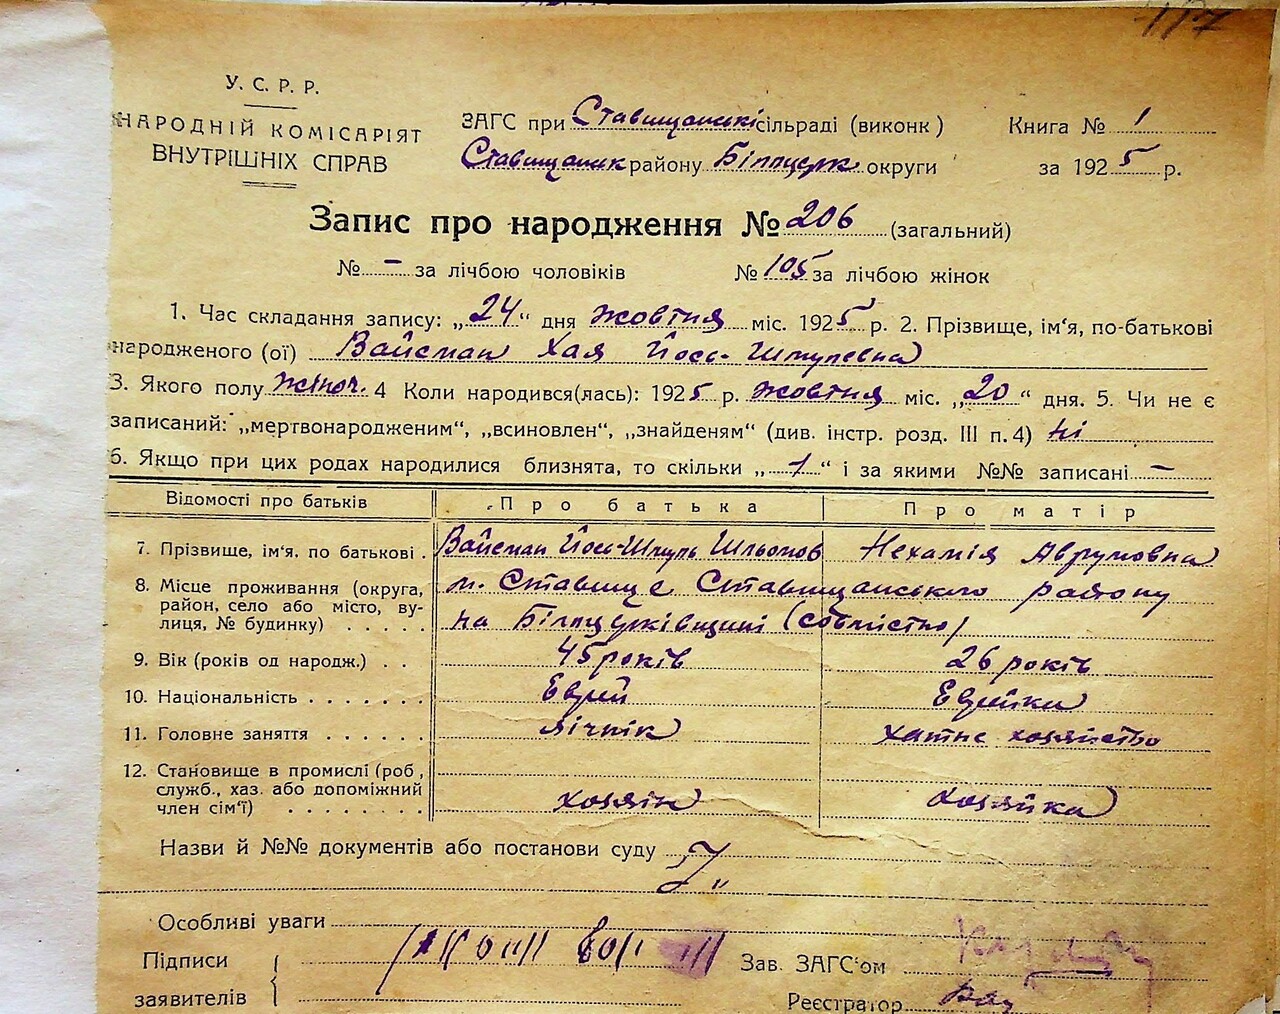 417
У. С. Р. Р.
НАРОДНІЙ КОМІСАРІЯТ
ВНУТРІШНІХ СПРАВ
ЗАГС при Ставищанскі сільраді (виконк)
Ставищанск району Білоцерк округи
Книга № 1
за 1925 р.
Запис про народження № 206 (загальний)
№ – за лічбою чоловіків № 105 за лічбою жінок
1. Час складання запису: „24“ дня жовтня міс. 1925 р. 2. Прізвище, ім'я, по-батькові
народженого (ої) Вайсман Хая Йось-Шмулевна
3. Якого полу жіноч. 4 Коли народився(лась): 1925 р. жовтня міс. „20“ дня. 5. Чи не є
записаний: „мертвонародженим“, „всиновлен“, „знайденям“ (див. інстр. розд. III п. 4) ні
6. Якщо при цих родах народилися близнята, то скільки „–1“ і за якими №№ записані –
Відомості про батьків Про батька Про матір
7. Прізвище, ім'я, по батькові . Вайсман Йось-Шмуль Шльомов Нехамія Аврумовна
8. Місце проживання (округа, м. Ставище Ставищанського району
район, село або місто, ву-
лиця, № будинку) . . . . . на Білоцерківщині (совмістно)
9. Вік (років од народж.) . . 45 років 26 років
10. Національність . . . . . . . Еврей Еврейка
11. Головне заняття . . . . . . хатне хозяйство
12. Становище в промислі (роб,
служб., хаз. або допоміжний
член сім'ї) . . . . . . . . хозяїн хозяйка
Назви й №№ документів або постанови суду
Особливі уваги
Підписи
заявителів
Зав. ЗАГС'ом
Реєстратор